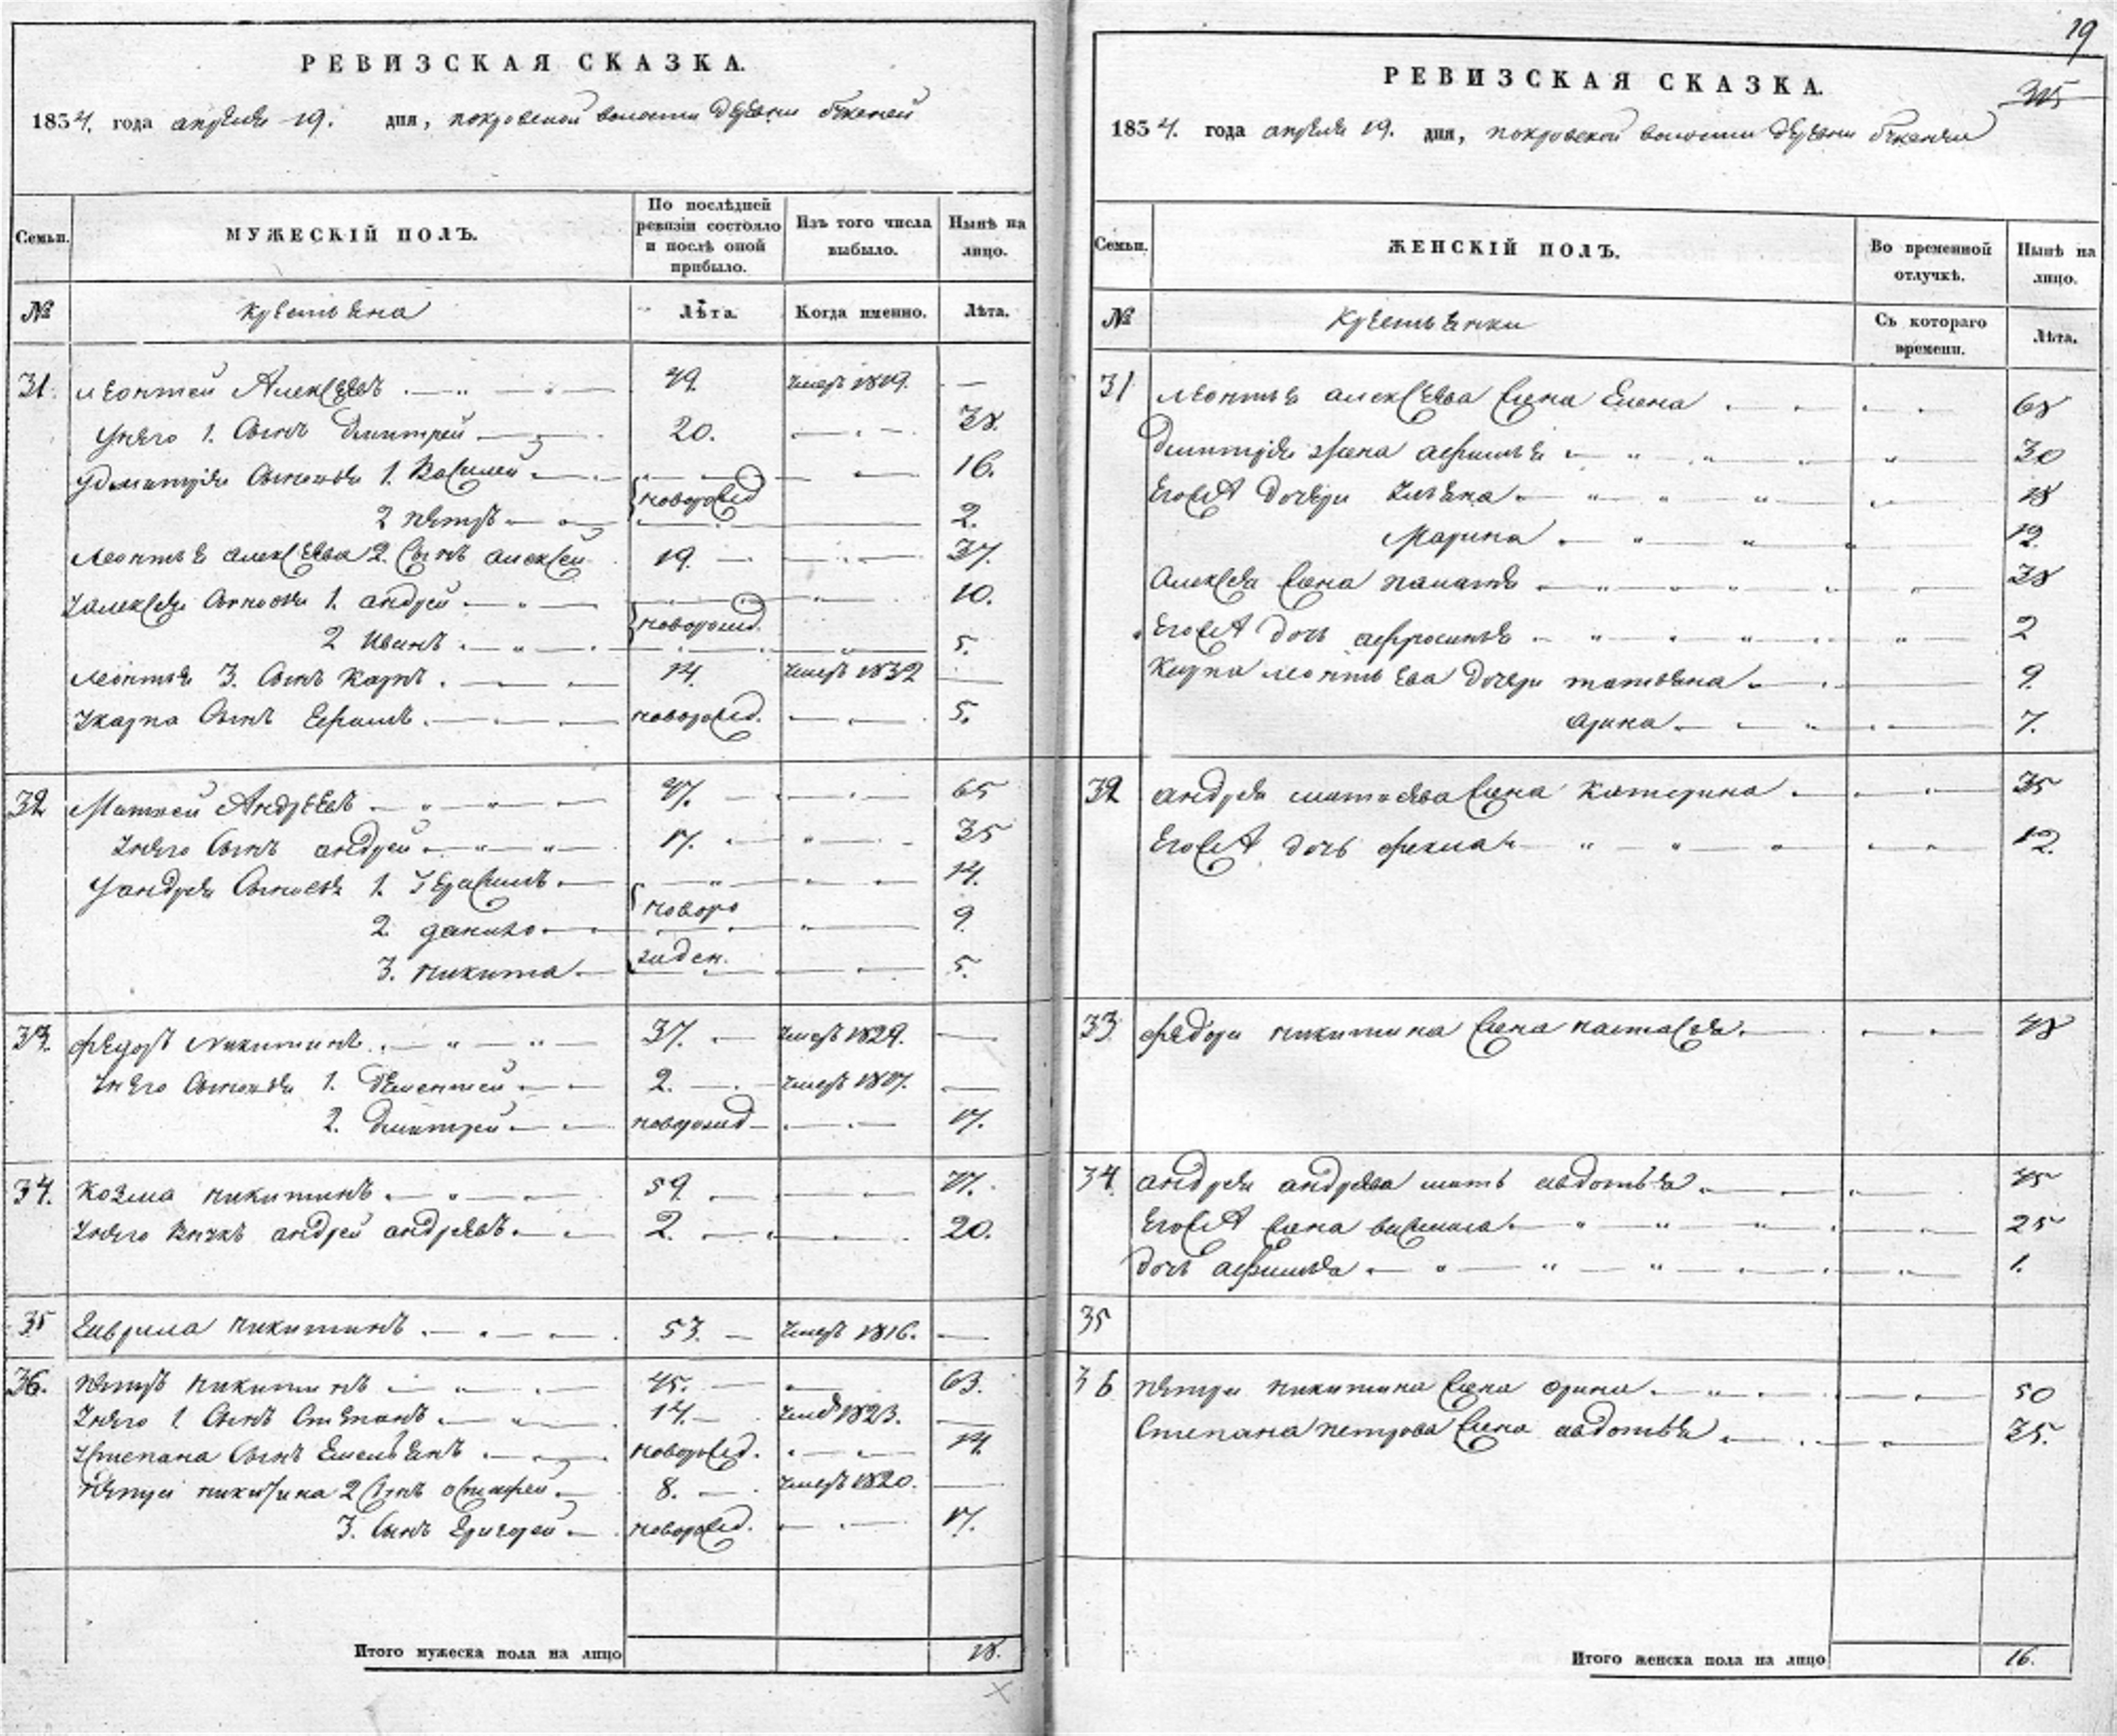 РЕВИЗСКАЯ СКАЗКА.
1834. года апреля 19. дня, покровской волости деревни
Семьи.
МУЖЕСКІЙ ПОЛЪ.
По послѣдней ревизіи состояло и послѣ оной прибыло.
Изъ того числа выбыло.
Нынѣ на лицо.
№
крестьяна
Лѣта.
Когда именно.
Лѣта.
31. леонтей Алексеевъ 49. умеръ 1819. —
унего 1. сынъ дмитрей 20. 38.
удмитрия сыновья 1. Василей 16.
новорожд
2 петръ 2.
леонтья алексеева 2. сынъ алексей 19. 37.
уалексея сыновья 1. андрей 10.
новорожд.
2 иванъ 5.
леонтья 3. сынъ карпъ 14. умеръ 1832 —
укарпа сынъ ефимъ новорожд. 5.
32 Матвей Андреевъ 47. 65
унего сынъ андрей 17. 35
уандрея сыновья 1. герасимъ 14.
новоро
2. данило 9.
жден.
3. никита 5.
33. федоръ никитинъ 37. умеръ 1829. —
унего сыновья 1. дементей 2. умеръ 1817. —
2. дмитрей новорожд 17.
34. козма никитинъ 59. 77.
унего внукъ андрей андреевъ 2. 20.
35 гаврила никитинъ 53. умеръ 1816. —
36. петръ никитинъ 45. 63.
унего 1 сынъ степанъ 14. умеръ 1823. —
устепана сынъ емельянъ новорожд. 14.
петра никитина 2 сынъ 8. умеръ 1820. —
3. сынъ григорей новорожд. 17.
Итого мужеска пола на лицо 18.
19
315
РЕВИЗСКАЯ СКАЗКА.
1834. года апреля 19. дня, покровской волости деревни
Семьи.
ЖЕНСКІЙ ПОЛЪ.
Во временной отлучкѣ.
Нынѣ на лицо.
№
крестьянки
Съ котораго времени.
Лѣта.
31 леонтья алексеева жена елена 68
дмитрия жена афимья 30
егожъ дочери ульяна 18
Марина 12
алексея жена 38
егожъ дочь афросинья 2
карпа леонтьева дочери татьяна 9.
арина 7.
32 андрея матвеева жена катерина 35
егожъ дочь фекла 12.
33 федора никитина жена настасья 48
34 андрея андреева мать авдотья 45
егожъ жена василиса 25
дочь афимья 1.
35
36 петра никитина жена орина 50
степана петрова жена авдотья 35.
Итого женска пола на лицо 16.